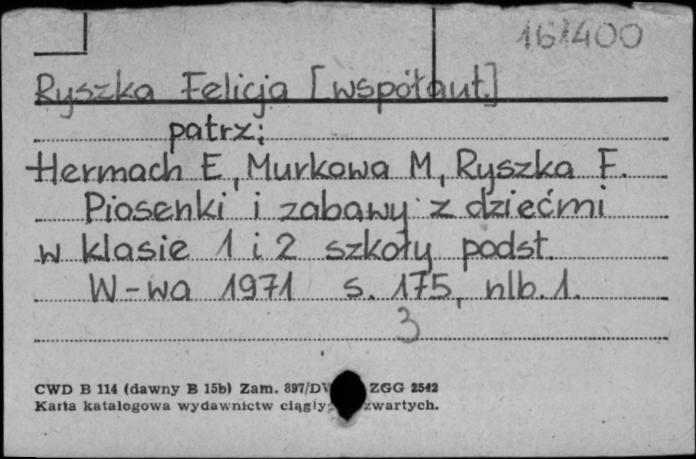 161400
Ryszka Felicja [współaut.]
patrz:
Hermach E, Murkowa M, Ryszka F.
Piosenki i zabawy z dziećmi
w klasie 1 i 2 szkoły podst.
W-wa 1971 s. 175, nlb. 1.
3
CWD B 114 (dawny B 15b) Zam. 897/D ZGG 2542
Karta katalogowa wydawnictw